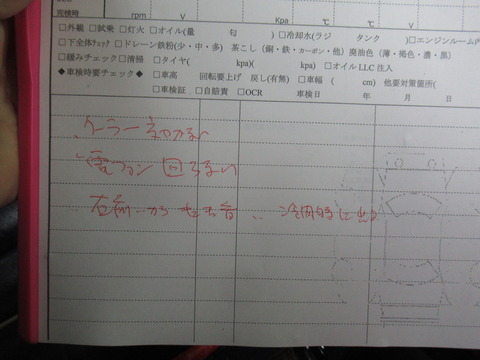 完検時 rpm V Kpa ℃ ℃ V
□外観 □試乗 □灯火 □オイル(量 匂 ) □冷却水(ラジ タンク )□エンジンルーム内
□下全体チェック □ドレーン鉄粉(少・中・多) 茶こし(銅・鉄・カーボン・他) 廃油色(薄・褐色・濃・黒)
□緩みチェック□清掃 □タイヤ( kpa)( kpa) □オイルLLC注入
◆車検時要チェック◆ □車高 回転要上げ 戻し(有無) □車幅 ( cm) 他要対策箇所(
□車検証 □自賠責 □OCR 車検日 年 月 日
クーラー
電ファン 回らない
右前 から 音